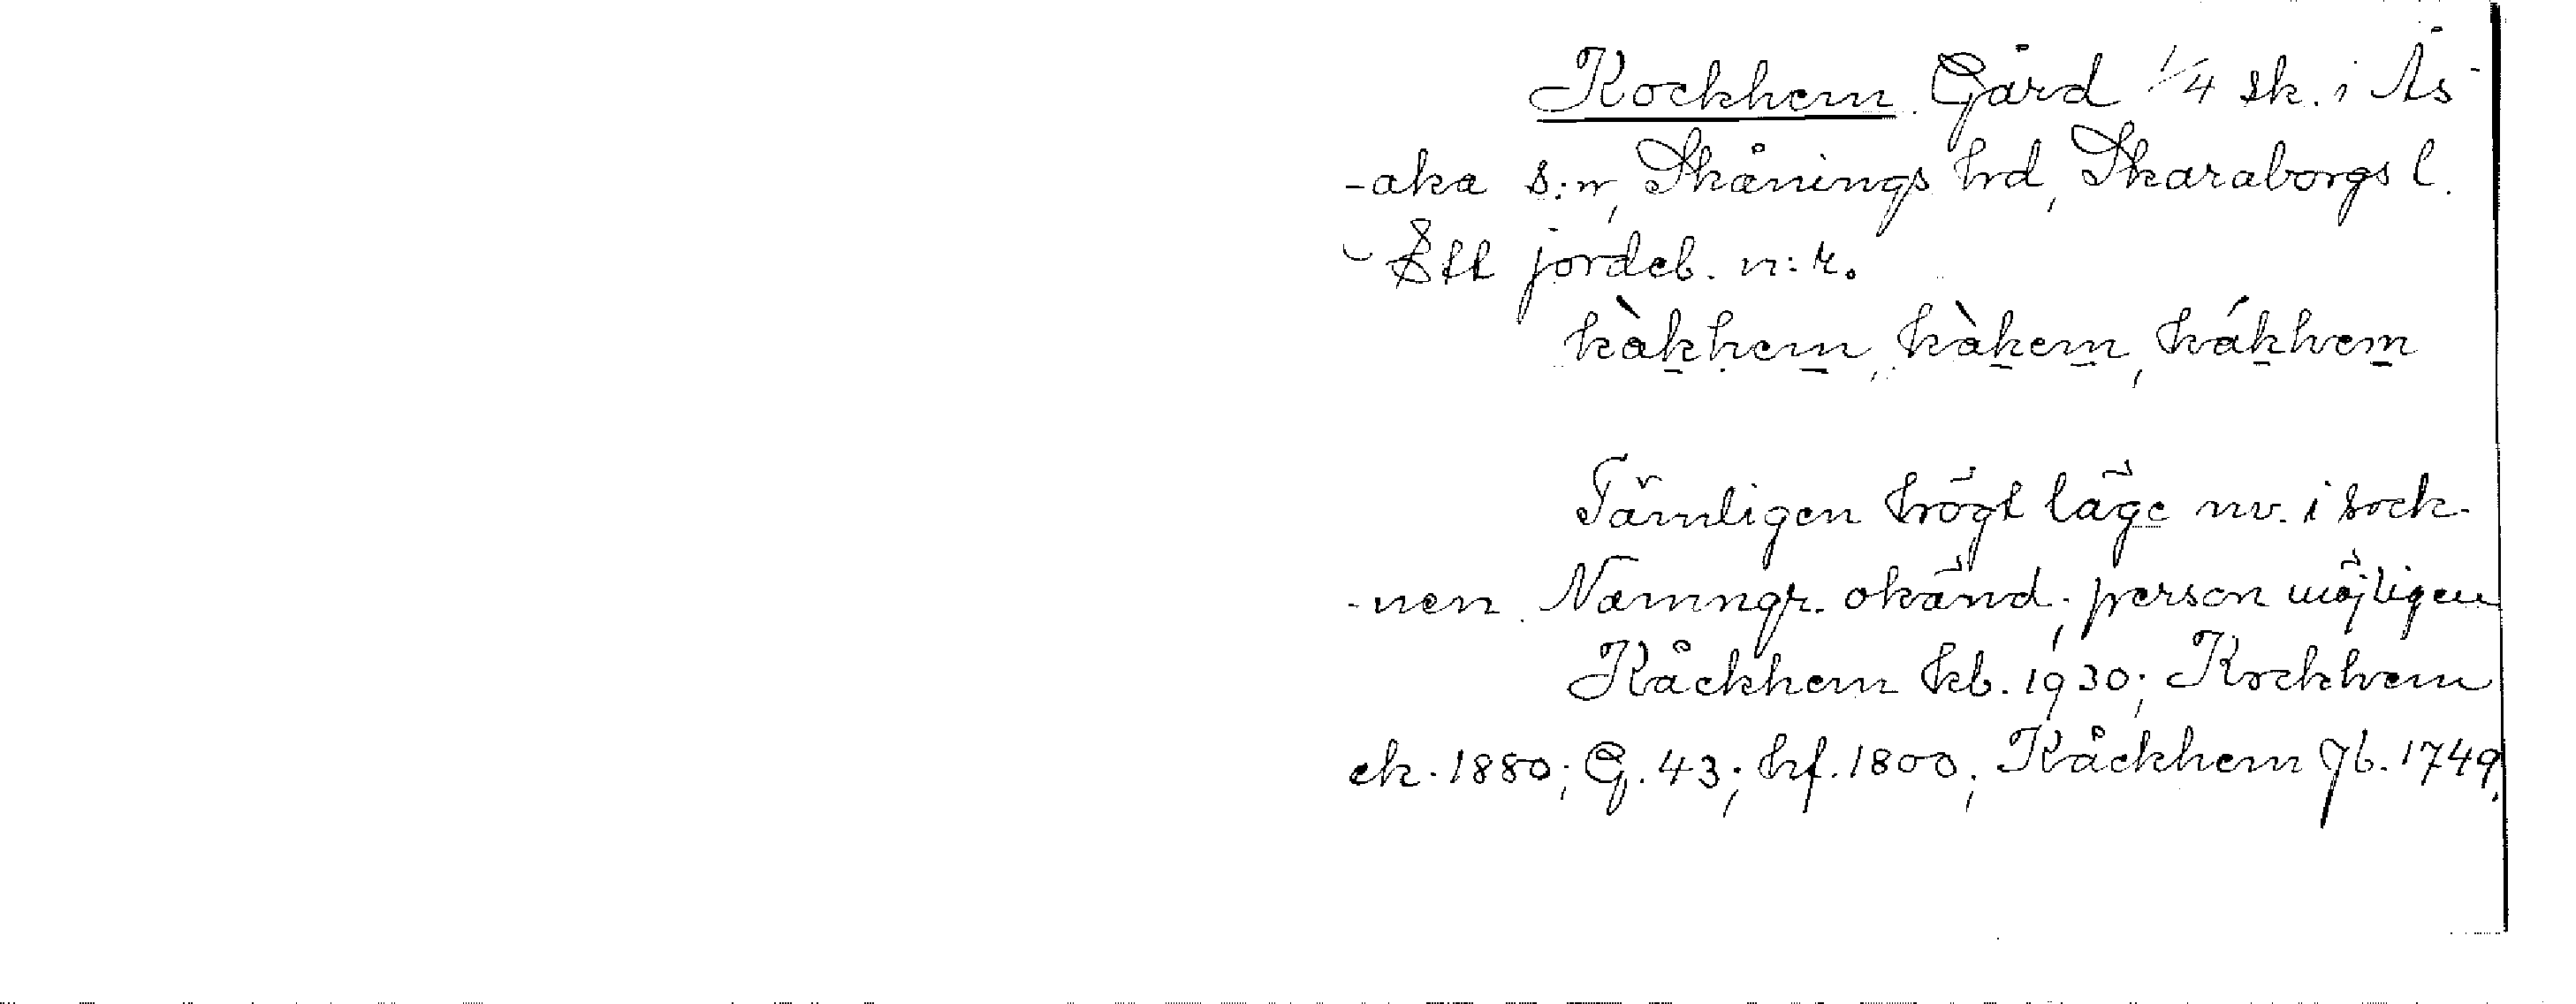 Kockhem. Gård 1/4 sk. i Ås-
-aka s:n, Skånings hd, Skaraborgs l.
- Ett jordeb. n:r.
kàkhem, kàkem, kákhem
Tämligen högt läge nv. i sock-
-nen. Namngr. okänd; person möjligen
Kåckhem kb. 1930; Kockhem
ek. 1880; G. 43; hf. 1800; Kåckhem Jb. 1749.